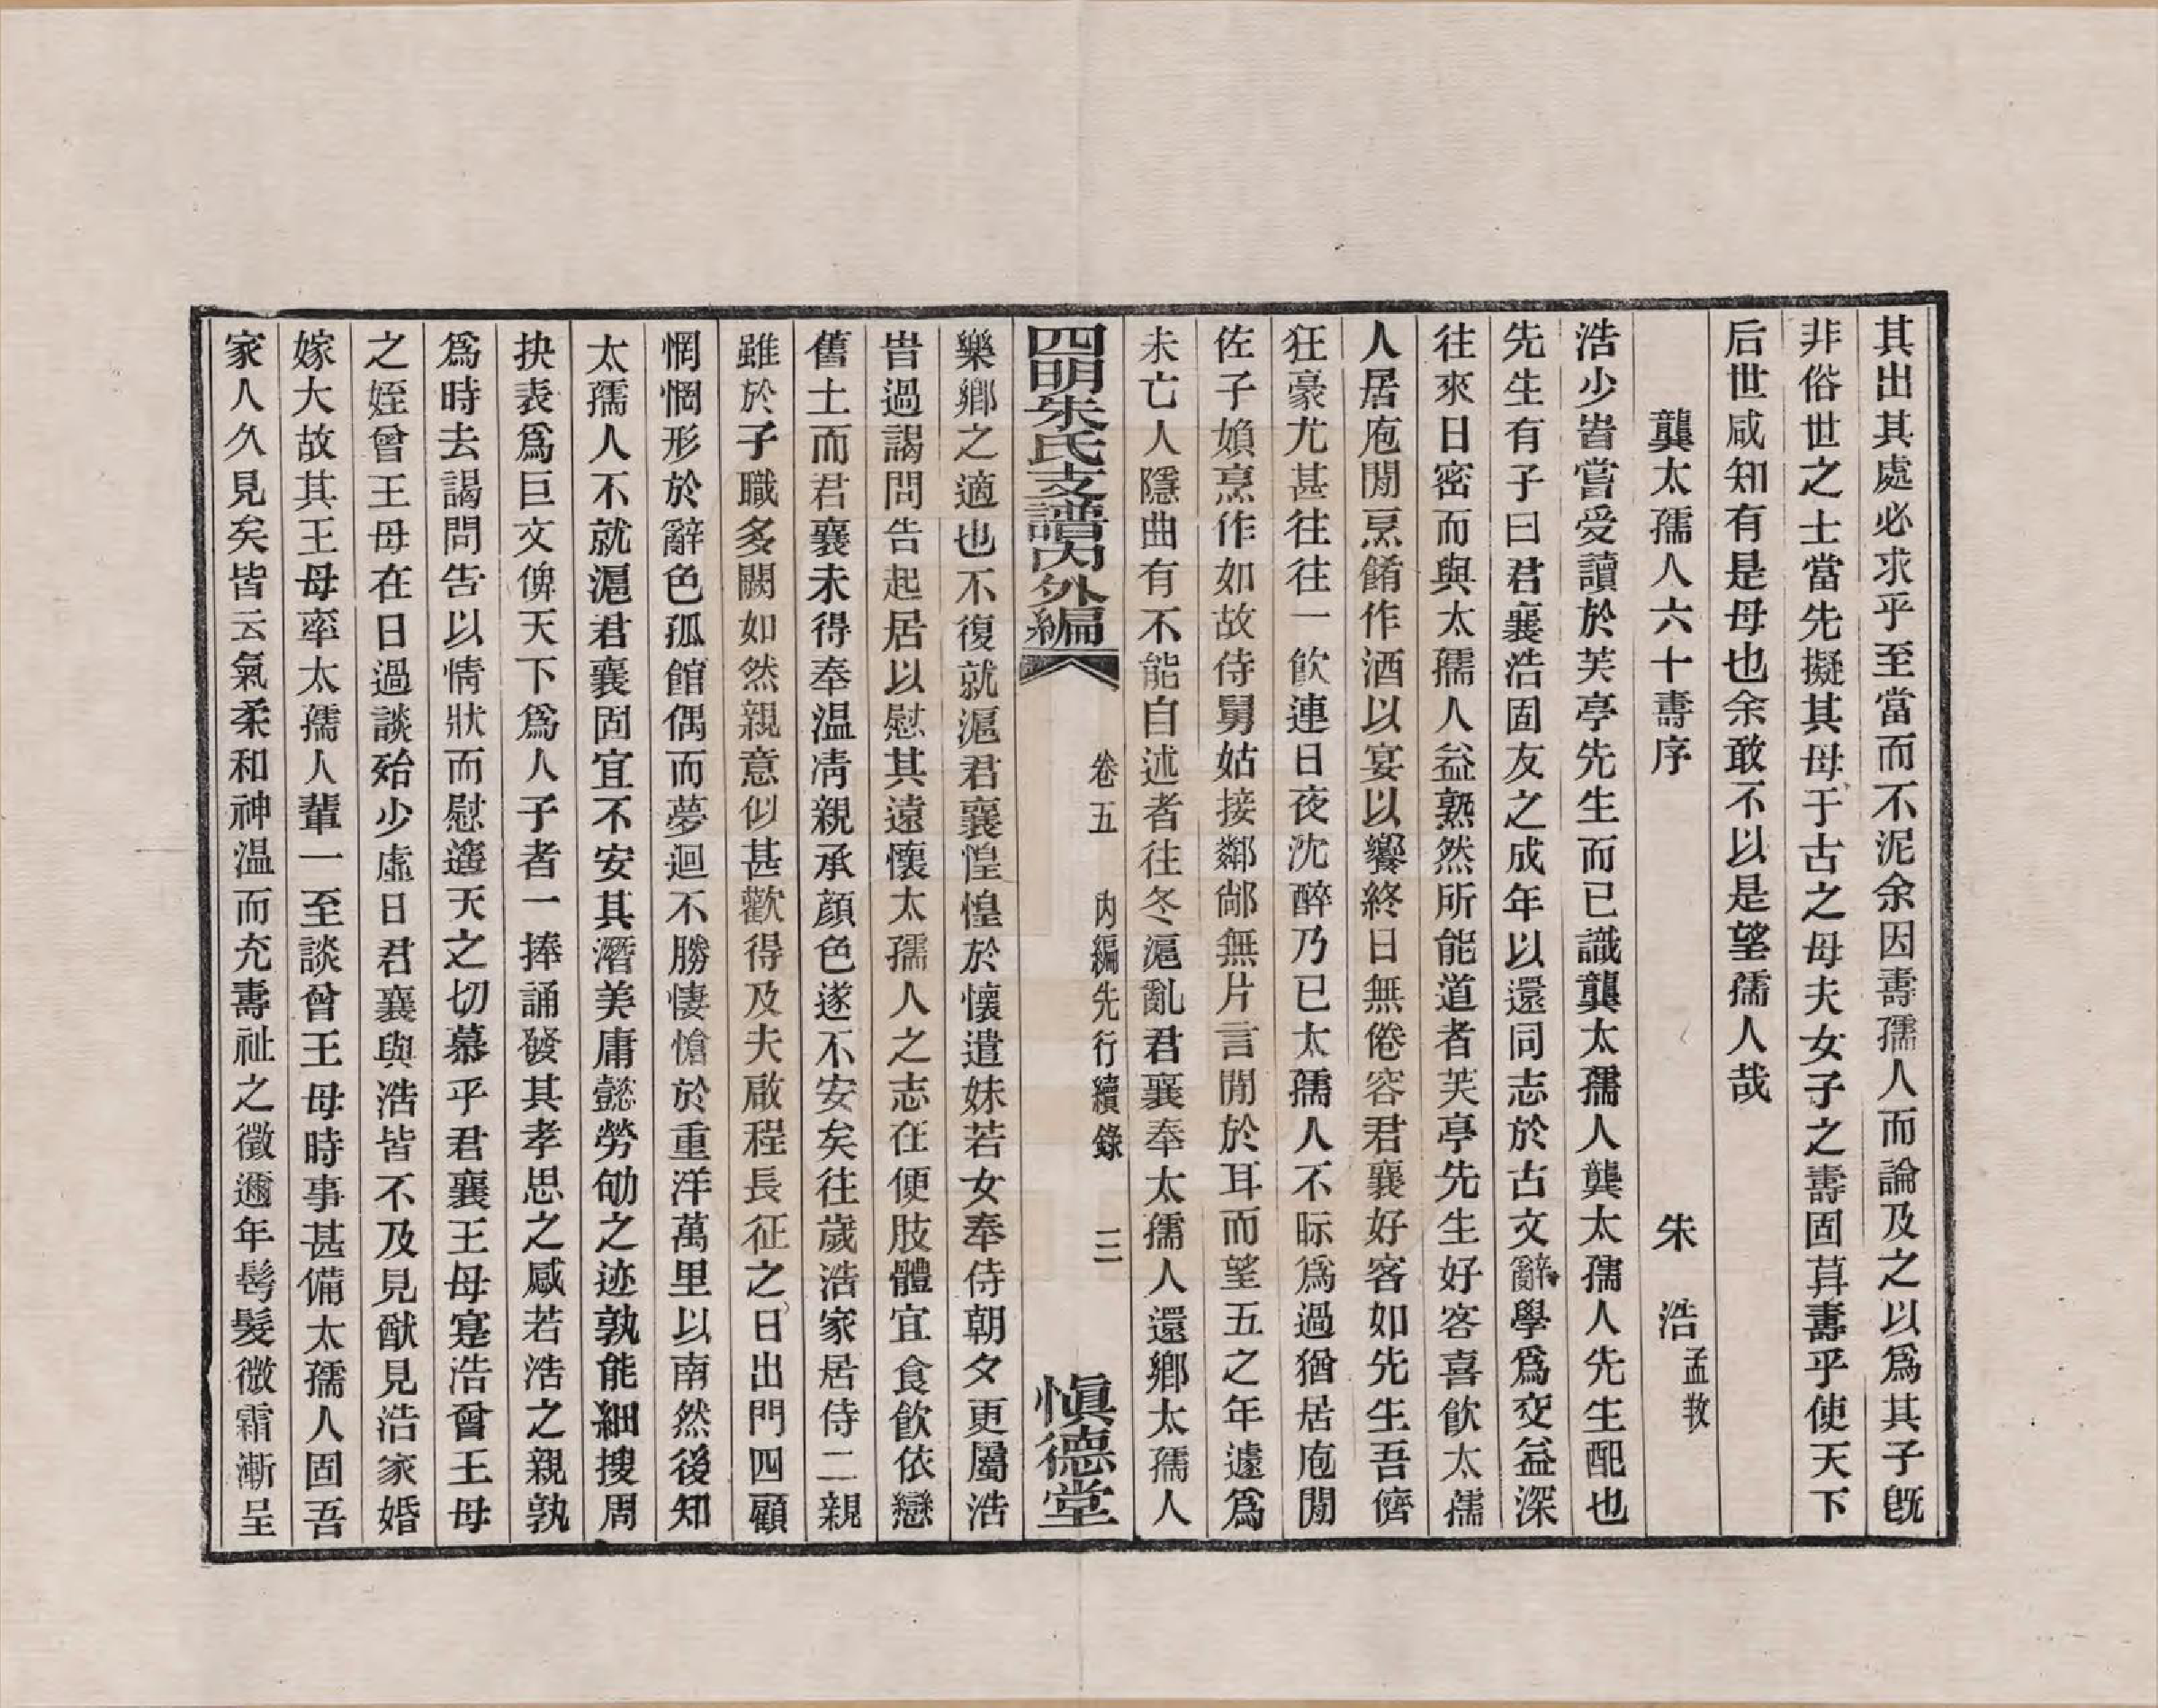 其出其處必求乎至當而不泥余因壽孺人而論及之以爲其子既
非俗世之士當先擬其母于古之母夫女子之壽固萛壽乎使天下
后世咸知有是母也余敢不以是望孺人哉
龔太孺人六十壽序 朱 浩孟敎
浩少旹嘗受讀於芙亭先生而已識龔太孺人龔太孺人先生配也
先生有子曰君襄浩固友之成年以還同志於古文辭學爲交益深
往來日密而與太孺人益熟然所能道者芙亭先生好客喜飮太孺
人居庖閒烹餚作酒以宴以饗終日無倦容君襄好客如先生吾儕
狂豪尤甚往往一飮連日夜沈醉乃已太孺人不眎爲過猶居庖閒
佐子媍烹作如故侍舅姑接鄰鄃無片言閒於耳而望五之年遽爲
未亡人隱曲有不能自述者往冬滬亂君襄奉太孺人還鄉太孺人
四明朱氏支譜內外編 卷五 內編先行續錄 三 愼德堂
樂鄉之適也不復就滬君襄惶惶於懷遣妹若女奉侍朝夕更屬浩
旹過謁問告起居以慰其遠懷太孺人之志在便肢體宜食飮依戀
舊土而君襄未得奉温凊親承顏色遂不安矣往歲浩家居侍二親
雖於子職多闕如然親意似甚歡得及夫啟程長征之日出門四顧
惘惘形於辭色孤館偶而夢迴不勝悽愴於重洋萬里以南然後知
太孺人不就滬君襄固宜不安其潛美庸懿勞劬之迹孰能細搜周
抉表爲巨文俾天下爲人子者一捧誦發其孝思之感若浩之親孰
爲時去謁問告以情狀而慰遙天之切慕乎君襄王母寔浩曾王母
之姪曾王母在日過談殆少虛日君襄與浩皆不及見猷見浩家婚
嫁大故其王母率太孺人輩一至談曾王母時事甚備太孺人固吾
家人久見矣皆云氣柔和神温而充壽祉之徵邇年髩髮微霜漸呈